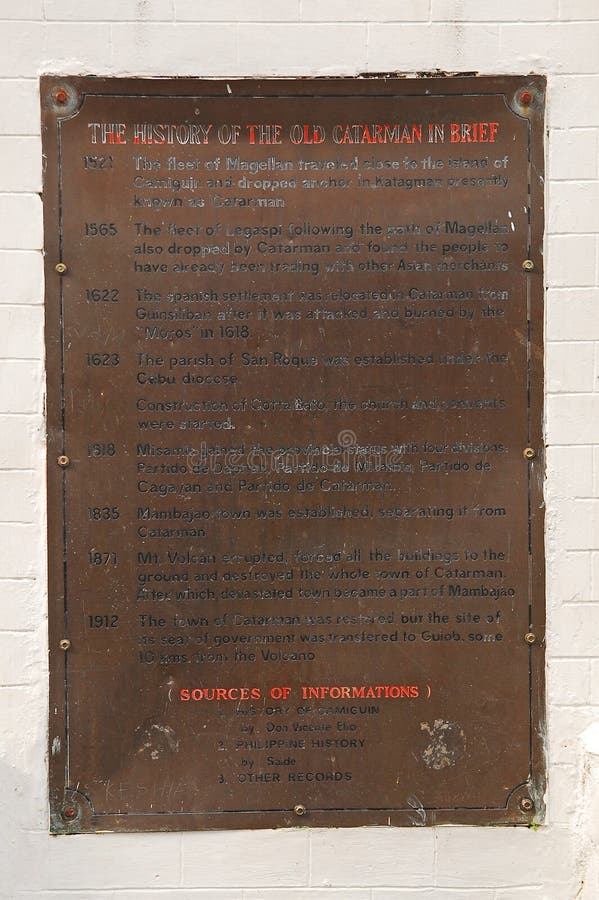 THE HISTORY OF THE OLD CATARMAN IN BRIEF
1521 The fleet of Magellan traveled close to the island of
Camiguin and dropped anchor in Katagman presently
known as Catarman
1565 The fleet of Legaspi following the path of Magellan
also dropped by Catarman and found the people to
have already been trading with other Asian merchants
1622 The spanish settlement was relocated in Catarman from
Guinsiliban after it was attacked and burned by the
"Moros" in 1618.
1623 The parish of San Roque was established under the
Cebu diocese
Construction of Cotta Bato, the church and convents
were started.
1818 Misamis gained the province status with four divisions:
Partido de Dapitan, Partido de Misamis, Partido de
Cagayan and Partido de Catarman.
1835 Mambajao town was established, separating it from
Catarman
1871 Mt. Volcan erupted, forced all the buildings to the
ground and destroyed the whole town of Catarman.
After which, devastated town became a part of Mambajao
1912 The town of Catarman was restored but the site of
its seat of government was transfered to Guiob, some
10 kms. from the Volcano
( SOURCES OF INFORMATIONS )
1. HISTORY OF CAMIGUIN
by Don Vicente Elio
2. PHILIPPINE HISTORY
by Saide
3. OTHER RECORDS
dreamstime